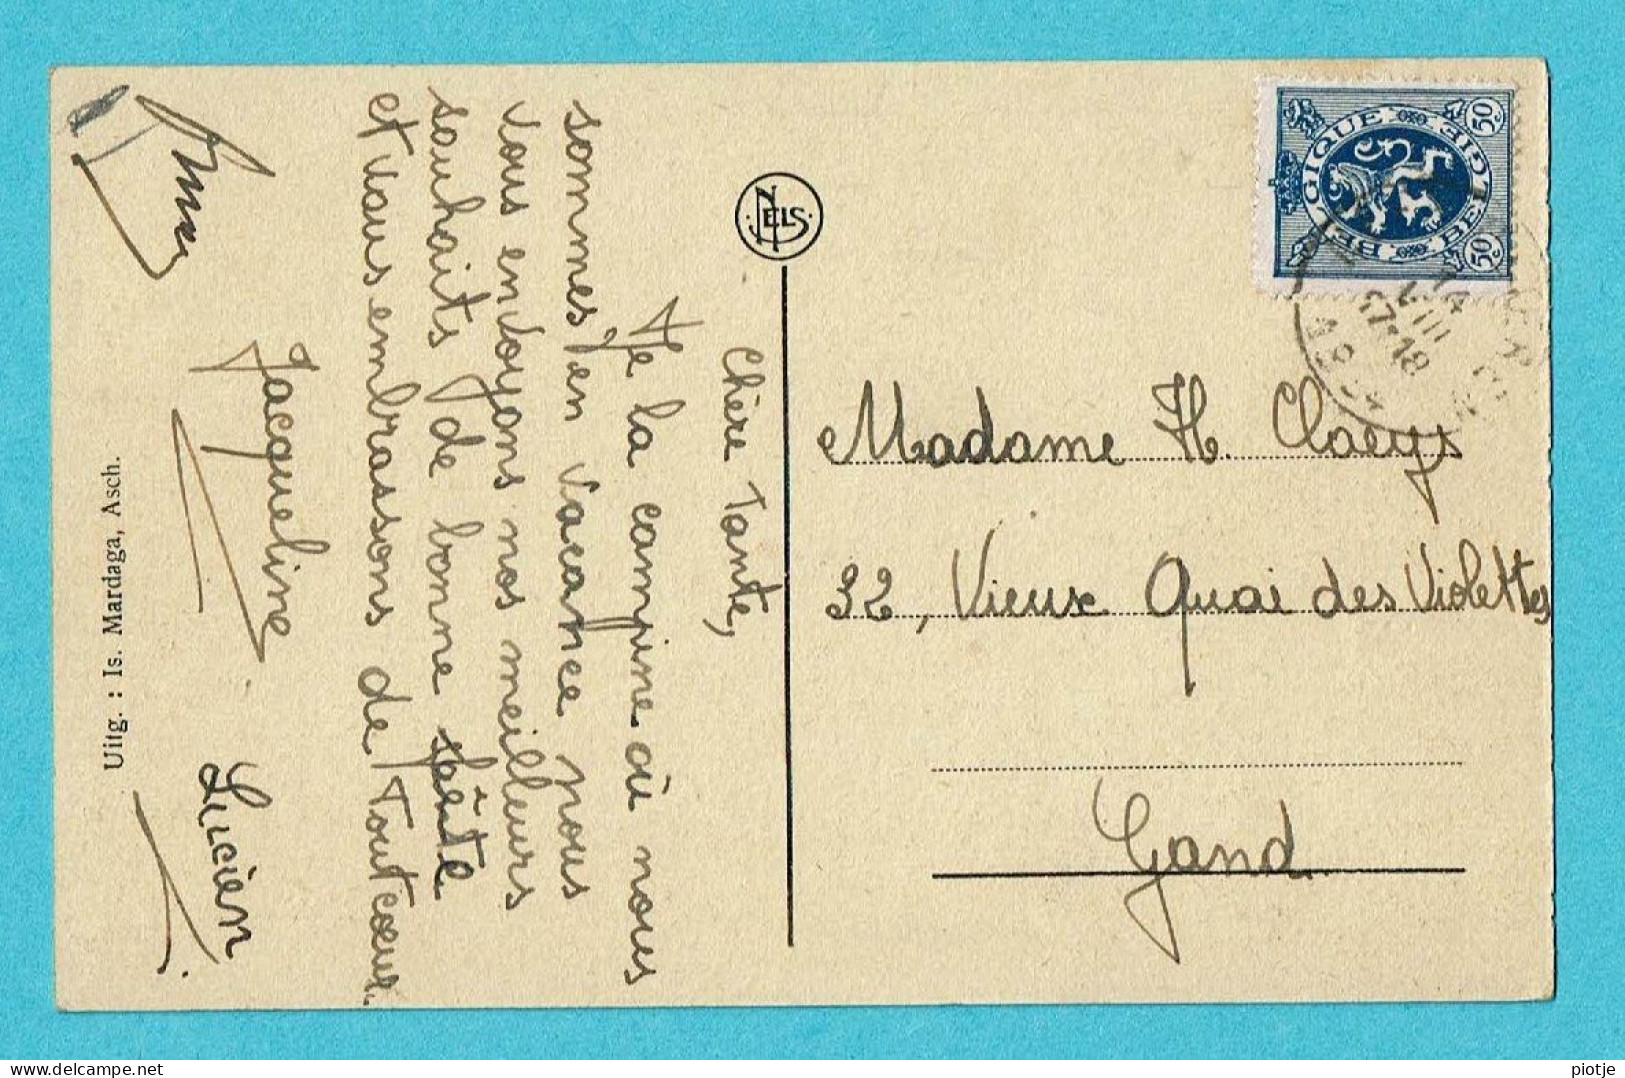 Chère Tante,
De la campine où nous
sommes en vacance nous
vous envoyons nos meilleurs
souhaits de bonne fête
et vous embrassons de tout cœur.
Jacqueline
Lucien
Uitg. : Is. Mardaga, Asch.
NELS
BELGIQUE BELGIË
50 50
14
VIII
17-18
Madame H. Claeys
32, Vieux Quai des Violettes
Gand
piotje